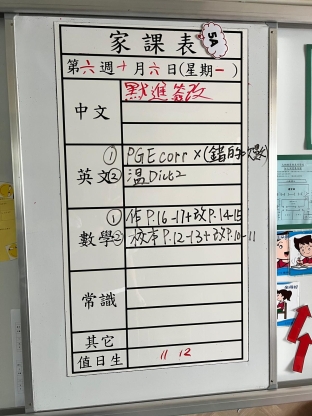 家課表
5A
第六週十月六日(星期一)
中文
默進簽改
英文
① PGE corr × (錯的次數)
② 温 Dict 2
數學
① 作 P.16-17+改P.14-15
② 校本 P.12-13+改P.10-11
常識
其它
值日生 11 12